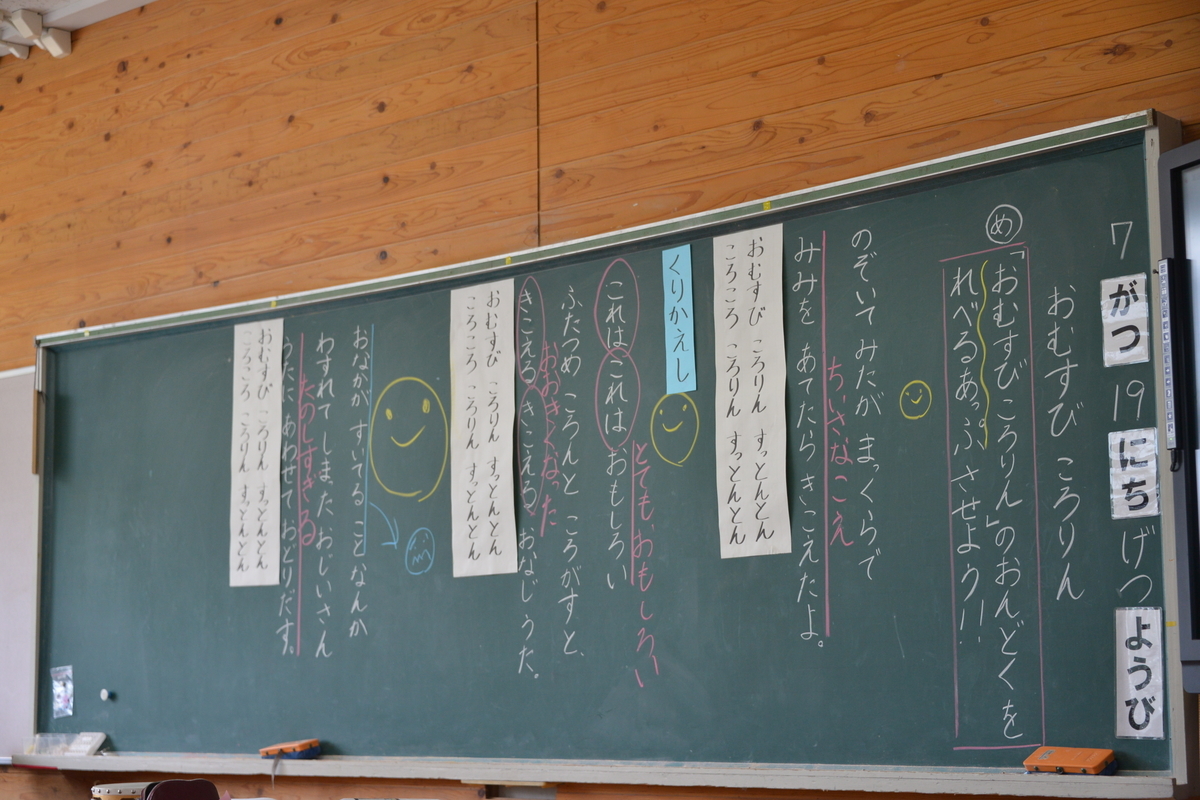 7がつ19にちげつようび
おむすび ころりん
め
「おむすびころりん」のおんどくを
れべるあっぷさせよう!!
のぞいて みたが まっくらで
ちいさなこえ
みみを あてたら きこえたよ。
おむすび ころりん すっとんとん
ころころ ころりん すっとんとん
くりかえし
とてもおもしろい
これは これは おもしろい
ふたつめ ころんと ころがすと、
おおきくなった
きこえる きこえる おなじ うた。
おむすび ころりん すっとんとん
ころころ ころりん すっとんとん
おなかが すいてる ことなんか
わすれて しまった おじいさん
たのしすぎる
うたに あわせて おどりだす。
おむすび ころりん すっとんとん
ころころ ころりん すっとんとん